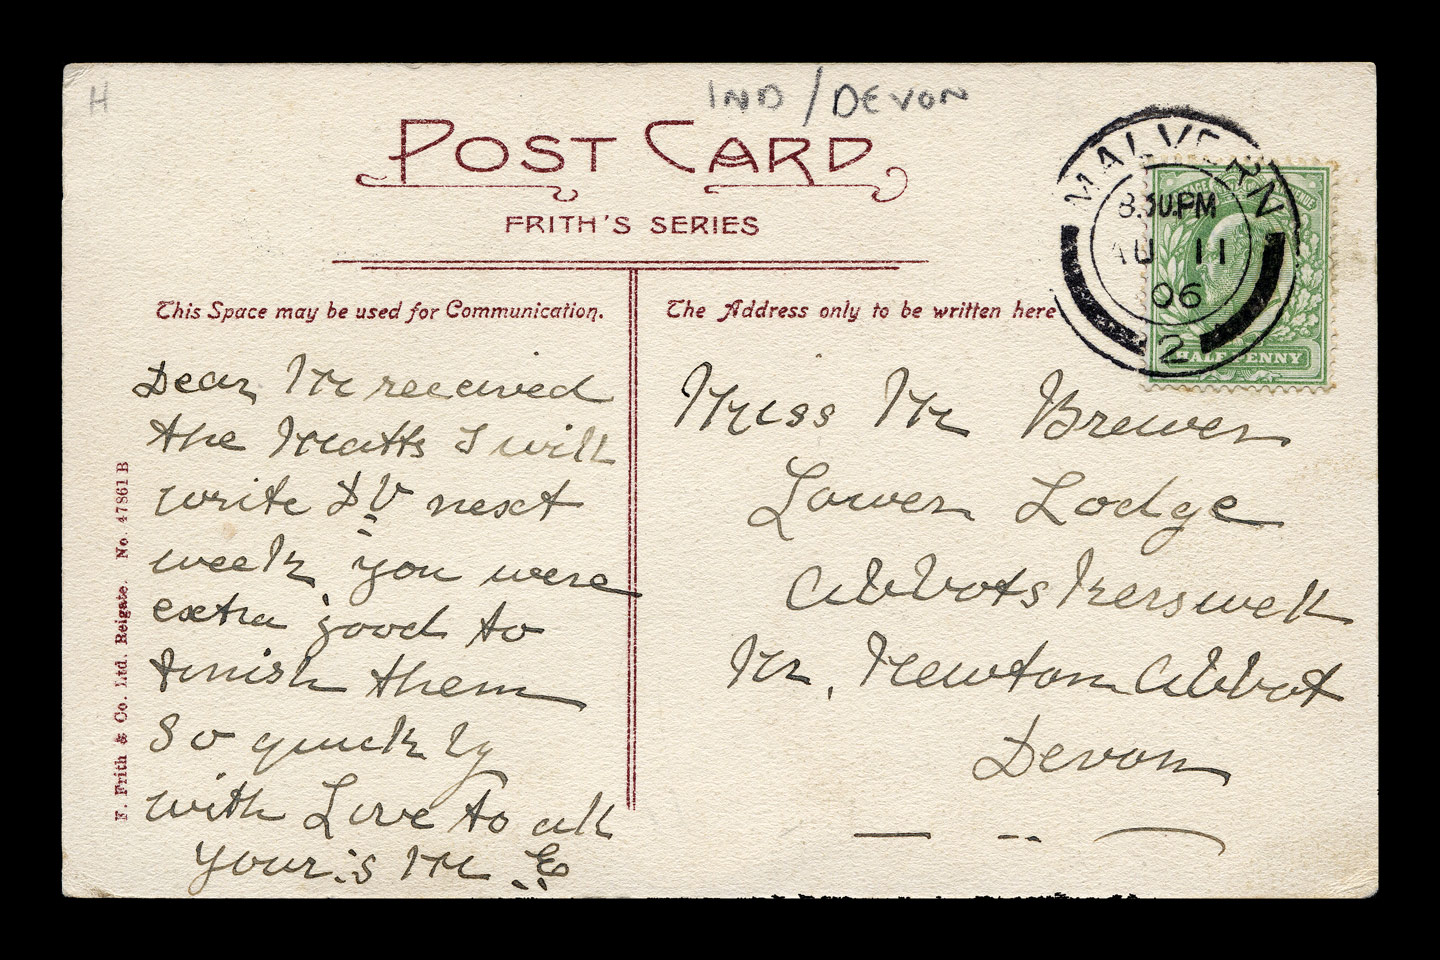 H
IND / DEVON
POST CARD
FRITH'S SERIES
This Space may be used for Communication.
The Address only to be written here
MALVERN
8.30.PM
AU 11
06
2
HALF PENNY
F. Frith & Co. Ltd. Reigate. No. 47861 B
Dear M received
the Matts I will
write DV next
week, you were
extra good to
finish them
So quickly
with Love to all
Your's M E
Miss M Brewer
Lower Lodge
Abbotskerswell
Nr. Newton Abbot
Devon